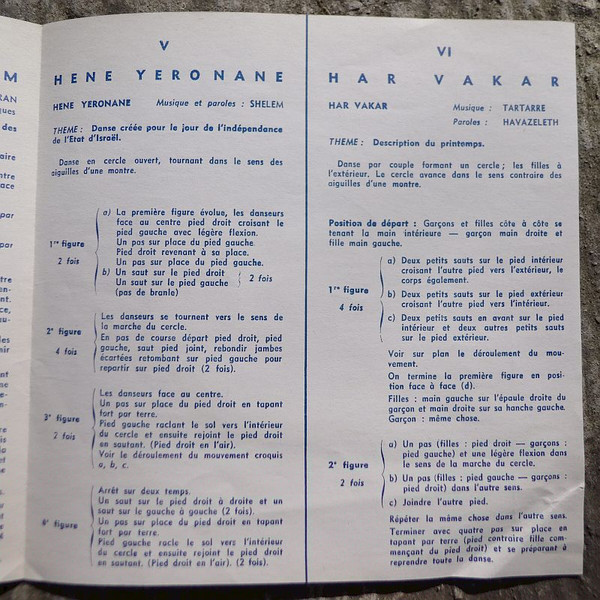 M
RAN
ques
des
aire
ntre
ace
par
par
V
HENE YERONANE
HENE YERONANE Musique et paroles : SHELEM
THEME : Danse créée pour le jour de l'indépendance
de l'Etat d'Israël.
Danse en cercle ouvert, tournant dans le sens des
aiguilles d'une montre.
1re figure
2 fois
a) La première figure évolue, les danseurs
face au centre pied droit croisant le
pied gauche avec légère flexion.
Un pas sur place du pied gauche.
Pied droit revenant à sa place.
Un pas sur place du pied gauche.
b) Un saut sur le pied droit
Un saut sur le pied gauche
2 fois
(pas de branle)
2e figure
4 fois
Les danseurs se tournent vers le sens de
la marche du cercle.
En pas de course départ pied droit, pied
gauche, saut pied joint, rebondir jambes
écartées retombant sur pied gauche pour
repartir sur pied droit (2 fois).
3e figure
2 fois
Les danseurs face au centre.
Un pas sur place du pied droit en tapant
fort par terre.
Pied gauche raclant le sol vers l'intérieur
du cercle et ensuite rejoint le pied droit
en sautant. (Pied droit en l'air).
Voir le déroulement du mouvement croquis
a, b, c.
figure
Arrêt sur deux temps.
Un saut sur le pied droit à droite et un
saut sur le gauche à gauche (2 fois).
Un pas sur place du pied droit en tapant
fort par terre.
Pied gauche racle le sol vers l'intérieur
du cercle et ensuite rejoint le pied droit
en sautant. (Pied droit en l'air). (2 fois).
VI
HAR VAKAR
HAR VAKAR Musique : TARTARRE
Paroles : HAVAZELETH
THEME : Description du printemps.
Danse par couple formant un cercle ; les filles à
l'extérieur. Le cercle avance dans le sens contraire des
aiguilles d'une montre.
Position de départ : Garçons et filles côte à côte se
tenant la main intérieure — garçon main droite et
fille main gauche.
1re figure
4 fois
a) Deux petits sauts sur le pied intérieur
croisant l'autre pied vers l'extérieur, le
corps également.
b) Deux petits sauts sur le pied extérieur
croisant l'autre pied vers l'intérieur.
c) Deux petits sauts en avant sur le pied
intérieur et deux autres petits sauts
sur le pied extérieur.
Voir sur plan le déroulement du mou-
vement.
On termine la première figure en posi-
tion face à face (d).
Filles : main gauche sur l'épaule droite du
garçon et main droite sur sa hanche gauche.
Garçon : même chose.
2e figure
2 fois
a) Un pas (filles : pied droit — garçons :
pied gauche) et une légère flexion dans
le sens de la marche du cercle.
b) Un pas (filles : pied gauche — garçons :
pied droit) dans l'autre sens.
c) Joindre l'autre pied.
Répéter la même chose dans l'autre sens.
Terminer avec quatre pas sur place en
tapant par terre (pied contraire fille com-
mençant du pied droit) et se préparant à
reprendre toute la danse.